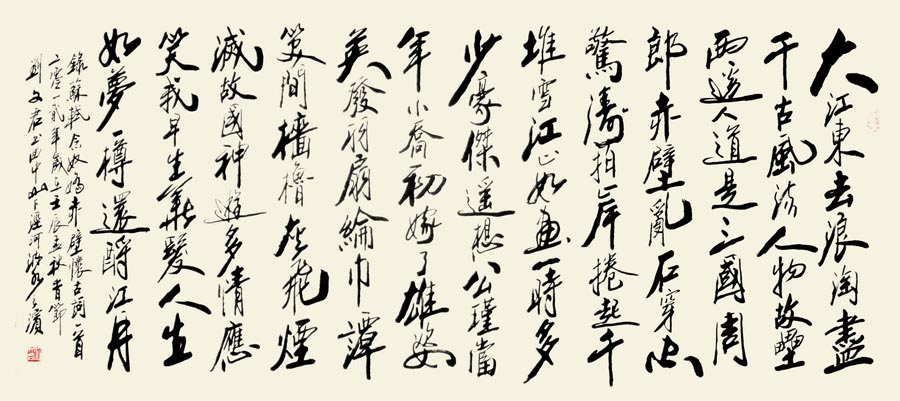 大江東去浪淘盡
千古風流人物故壘
西邊人道是三國周
郎赤壁亂石穿空
驚濤拍岸捲起千
堆雪江山如畫一時多
少豪傑遙想公瑾當
年小喬初嫁了雄姿
英發羽扇綸巾譚
笑間檣櫓灰飛煙
滅故國神遊多情應
笑我早生華髮人生
如夢一樽還酹江月
錄蘇軾念奴嬌赤壁懷古詞一首
年歲在壬辰
河之濱